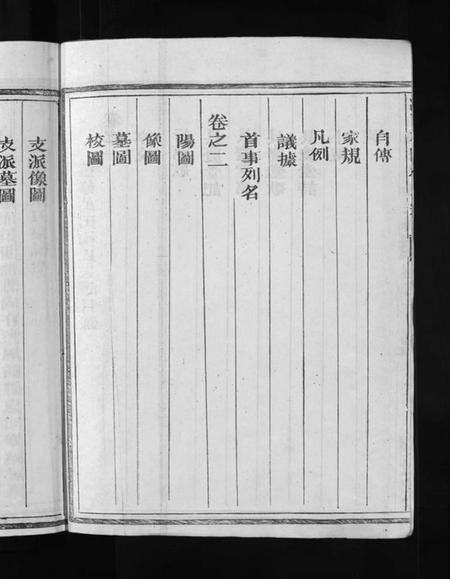 自傳
家規
凡例
議據
首事列名
卷之二
陽圖
像圖
墓圖
校圖
支派像圖
支派墓圖